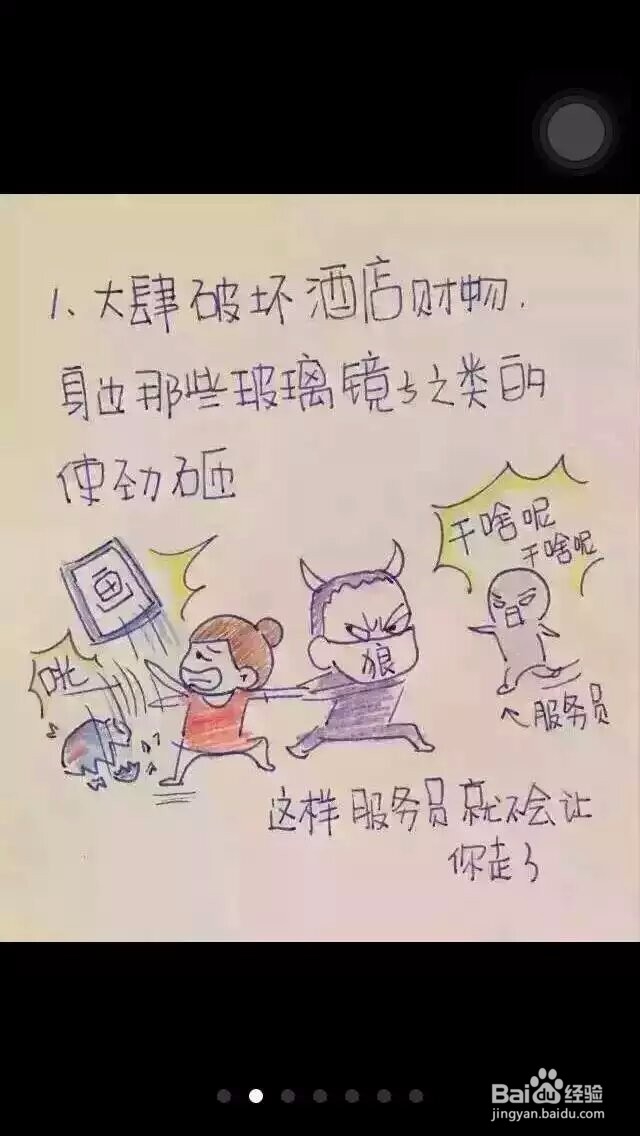 1、大肆破坏酒店财物.
身边那些玻璃镜子之类的
使劲砸
干啥呢
干啥呢
画
狼
咣
↖服务员
这样服务员就不会让
你走了
Baidu经验
jingyan.baidu.com